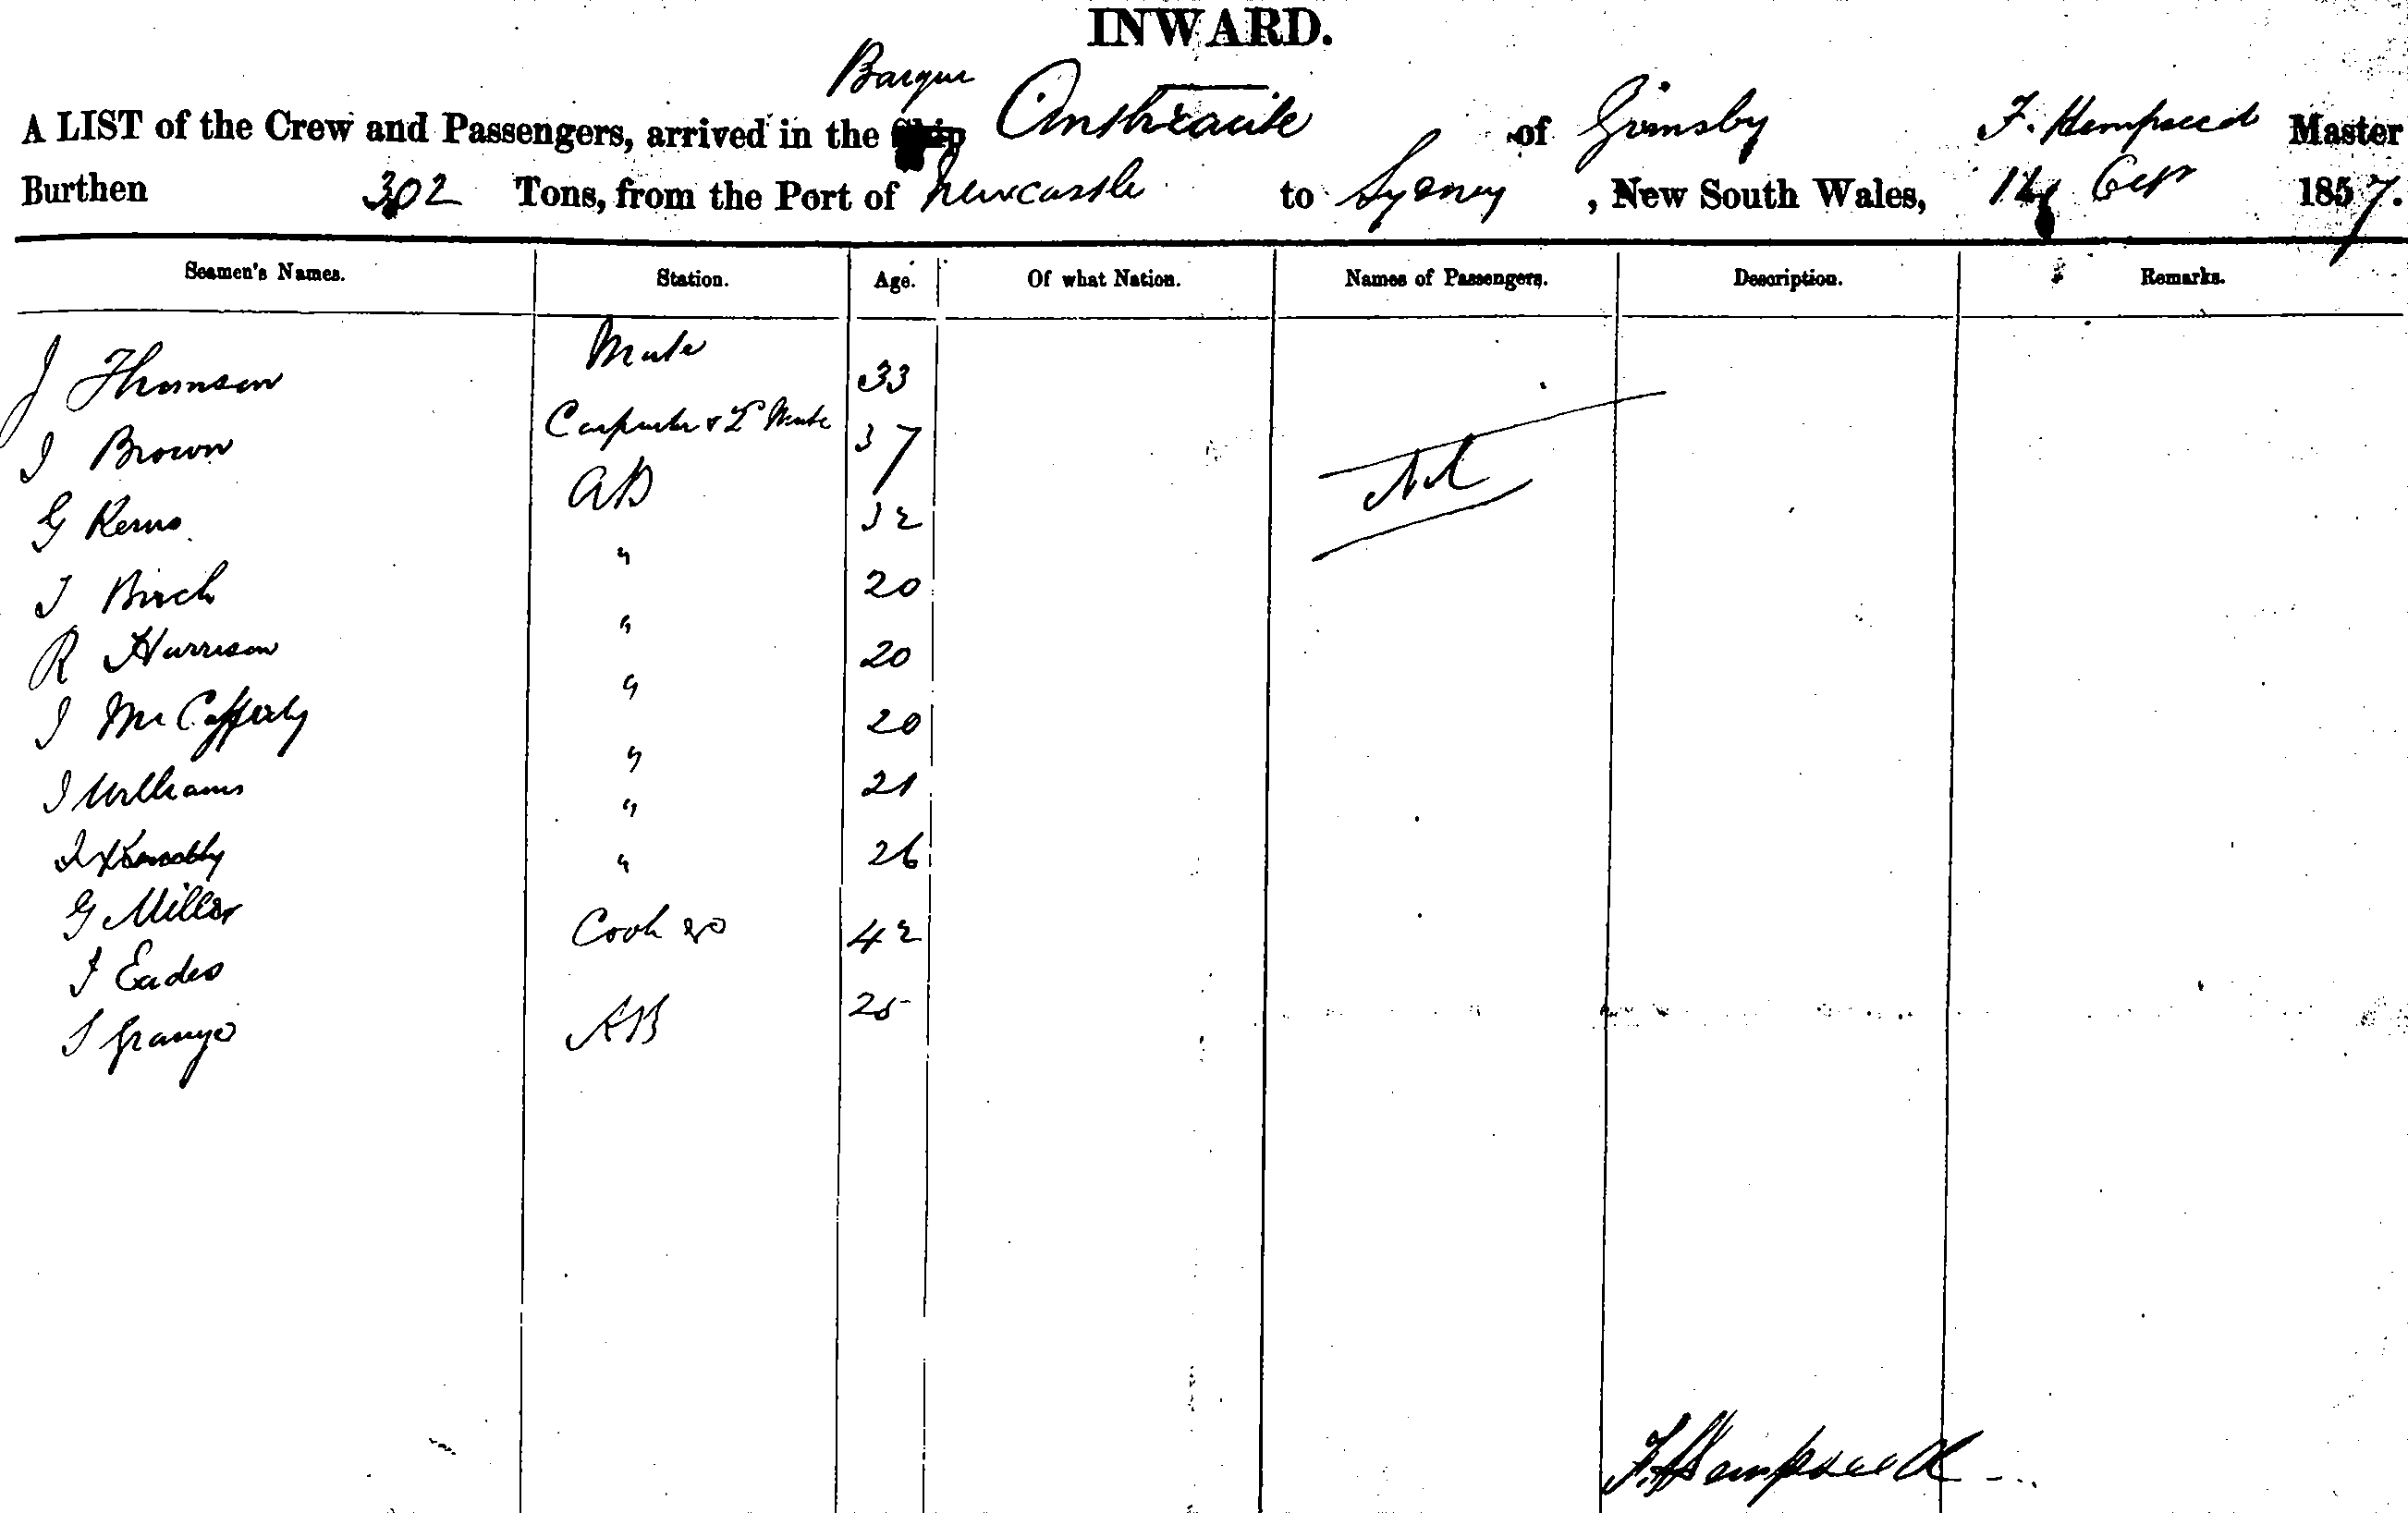 INWARD.
Barque
A LIST of the Crew and Passengers, arrived in the Ship Anthracite of Grimsby F. Hempseed Master
Burthen 302 Tons, from the Port of Newcastle to Sydney, New South Wales, 14 1857.
Seamen's Names. Station. Age. Of what Nation. Names of Passengers. Description. Remarks.
J Thomson Mate 33
J Brown Carpenter & 2d Mate 37 Nil
G Kerns AB 32
J Birch " 20
R Harrison " 20
J McCafferty " 20
J Williams " 21
J " 26
G Miller "
J Eades Cook &c 42
J Grange AB 25
F. Hempseed